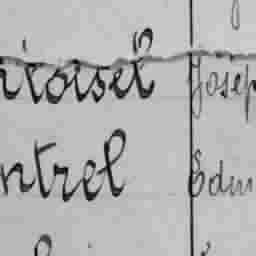 itoiset Josep
ntrel Edm